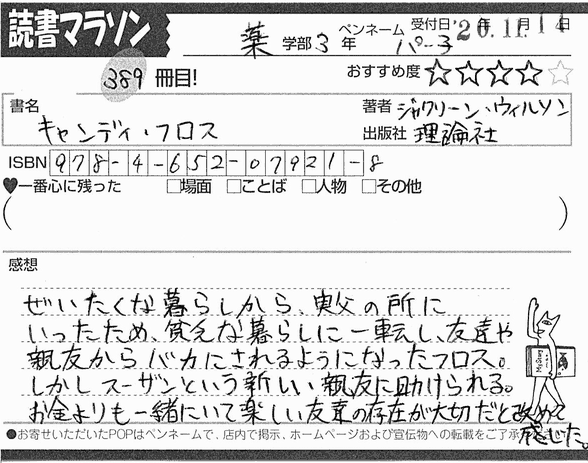 読書マラソン
薬 学部 3 年 ペンネーム パー子 受付日 '20年 11月 14日
389 冊目!
おすすめ度 ☆☆☆☆☆
書名 キャンディ・フロス
著者 ジャクリーン・ウィルソン
出版社 理論社
ISBN 978-4-652-07921-8
♥一番心に残った □場面 □ことば □人物 □その他
( )
感想
ぜいたくな暮らしから、実父の所に
いったため、貧乏な暮らしに一転し、友達や
親友からバカにされるようになったフロス。
しかしスーザンという新しい親友に助けられる。
お金よりも一緒にいて楽しい友達の存在が大切だと改めて
感じた。
●お寄せいただいたPOPはペンネームで、店内で掲示、ホームページおよび宣伝物への転載をご了承